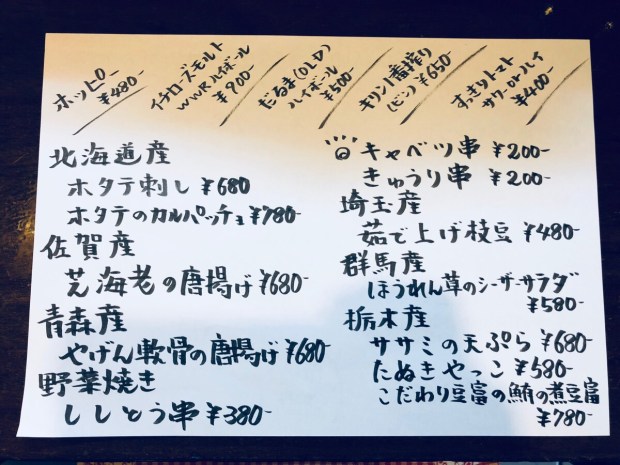 ホッピー
¥480-
イチローズモルト
WWR ハイボール
¥900-
だるま(OLD)
ハイボール
¥500-
キリン一番搾り
(ビン) ¥650-
すっきりトマト
サワーorハイ
¥400-
北海道産
ホタテ刺し ¥680
ホタテのカルパッチョ ¥780-
佐賀産
芝海老の唐揚げ ¥680-
青森産
やげん軟骨の唐揚げ ¥680-
野菜焼き
ししとう串 ¥380-
◎キャベツ串 ¥200-
きゅうり串 ¥200-
埼玉産
茹で上げ枝豆 ¥480-
群馬産
ほうれん草のシーザーサラダ
¥580-
栃木産
ササミの天ぷら ¥680-
たぬきやっこ ¥580-
こだわり豆富の鮪の煮豆富
¥780-